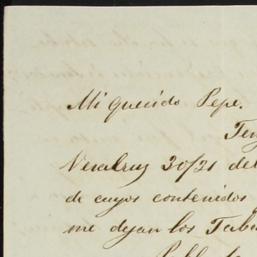 Mi querido Pepe.
Ten
Veracruz 30/31 del
de cuyos contenidos
me dejan los Tab